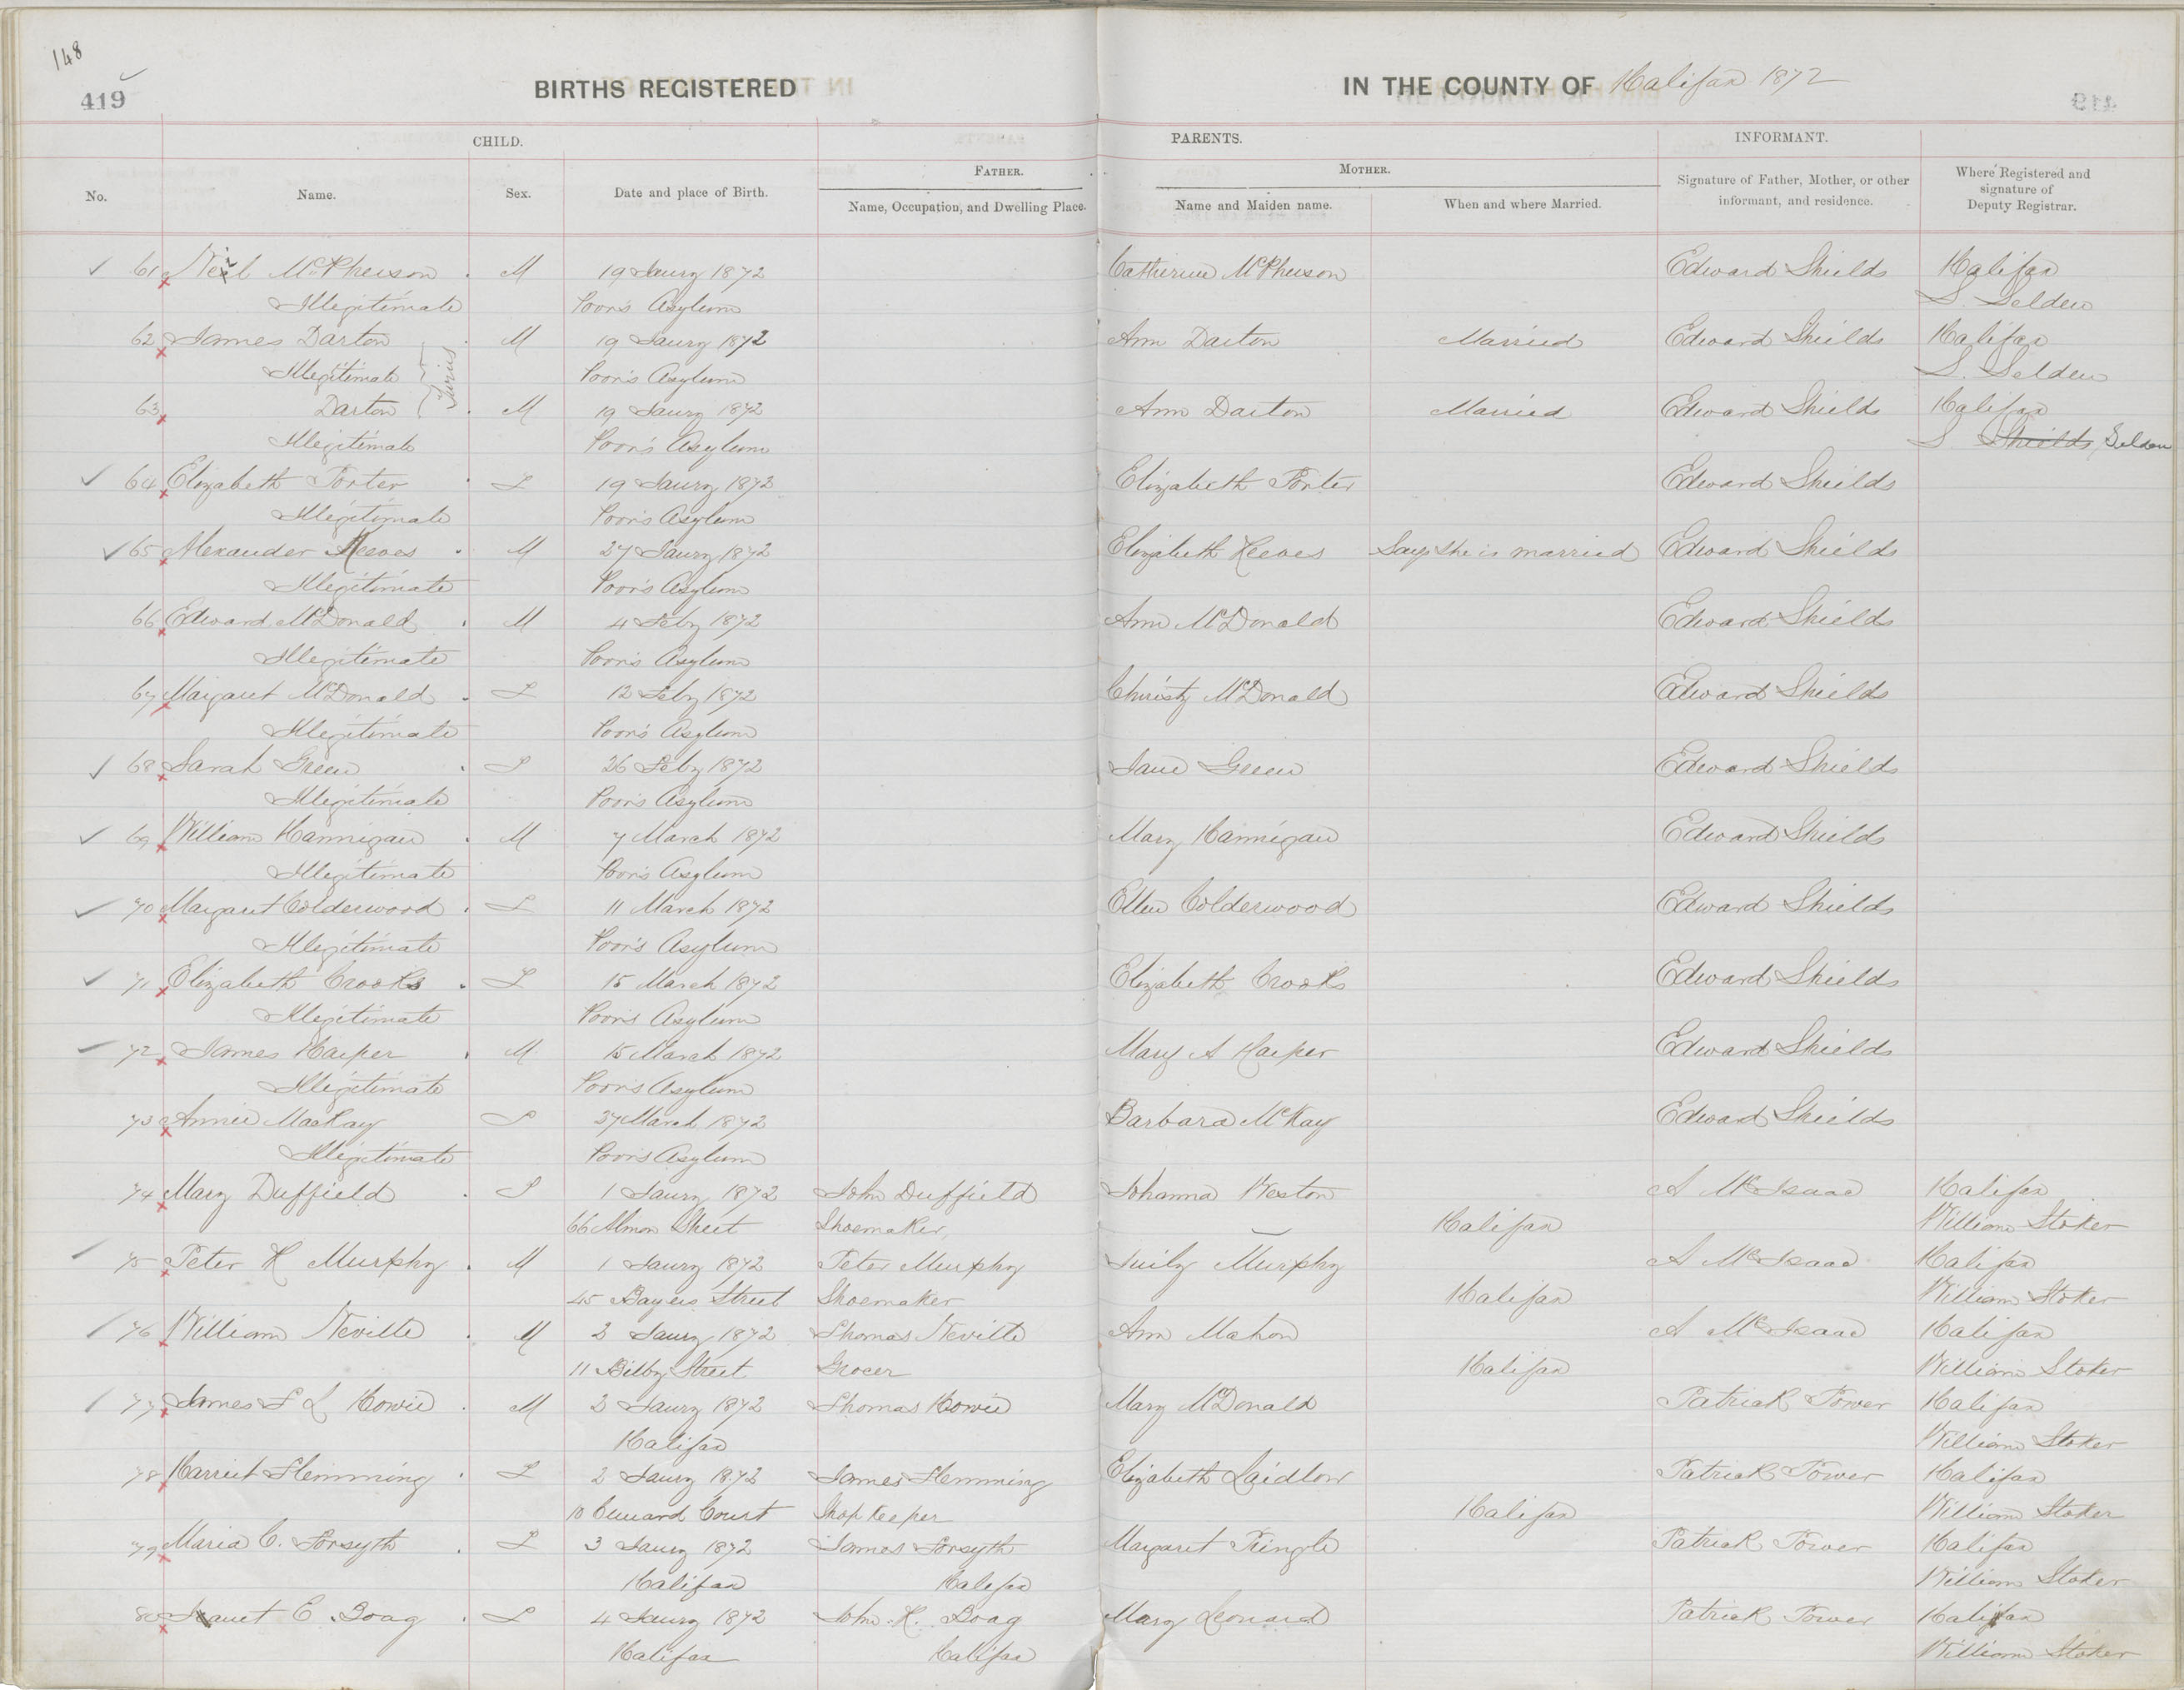 148
419
BIRTHS REGISTERED IN THE COUNTY OF Halifax 1872
CHILD. PARENTS. INFORMANT.
FATHER. MOTHER.
No. Name. Sex. Date and place of Birth. Name, Occupation, and Dwelling Place. Name and Maiden name. When and where Married. Signature of Father, Mother, or other informant, and residence. Where Registered and signature of Deputy Registrar.
61 Neil McPherson M 19 Jaury 1872 Catherine McPherson Edward Shields Halifax
Illegitimate Poor's Asylum S. Selden
62 James Darton M 19 Jaury 1872 Ann Darton Married Edward Shields Halifax
Illegitimate Twins Poor's Asylum S. Selden
63 Darton M 19 Jaury 1872 Ann Darton Married Edward Shields Halifax
Illegitimate Poor's Asylum S Shields Selden
64 Elizabeth Porter F 19 Jaury 1872 Elizabeth Porter Edward Shields
Illegitimate Poor's Asylum
65 Alexander Reeves M 27 Jaury 1872 Elizabeth Reeves Says she is married Edward Shields
Illegitimate Poor's Asylum
66 Edward McDonald M 4 Feby 1872 Ann McDonald Edward Shields
Illegitimate Poor's Asylum
67 Margaret McDonald F 12 Feby 1872 Christy McDonald Edward Shields
Illegitimate Poor's Asylum
68 Sarah Green F 26 Feby 1872 Jane Green Edward Shields
Illegitimate Poor's Asylum
69 William Hannigan M 7 March 1872 Mary Hannigan Edward Shields
Illegitimate Poor's Asylum
70 Margaret Colderwood F 11 March 1872 Ellen Colderwood Edward Shields
Illegitimate Poor's Asylum
71 Elizabeth Crooks F 15 March 1872 Elizabeth Crooks Edward Shields
Illegitimate Poor's Asylum
72 James Harper M 15 March 1872 Mary A Harper Edward Shields
Illegitimate Poor's Asylum
73 Annie MacKay F 27 March 1872 Barbara McKay Edward Shields
Illegitimate Poor's Asylum
74 Mary Duffield F 1 Jaury 1872 John Duffield Johanna Weston A McIsaac Halifax
66 Almon Street Shoemaker, Halifax William Stoker
75 Peter H Murphy M 1 Jaury 1872 Peter Murphy Murphy A McIsaac Halifax
45 Bayers Street Shoemaker Halifax William Stoker
76 William Neville M 2 Jaury 1872 Thomas Neville Ann Mahon A McIsaac Halifax
11 Bilby Street Grocer Halifax William Stoker
77 James F L Howie M 2 Jaury 1872 Thomas Howie Mary McDonald Patrick Power Halifax
Halifax William Stoker
78 Harriet Flemming F 2 Jaury 1872 James Flemming Elizabeth Laidlow Patrick Power Halifax
10 Cunard Court Shop Keeper Halifax William Stoker
79 Maria C. Forsyth F 3 Jaury 1872 James Forsyth Margaret Pringle Patrick Power Halifax
Halifax Halifax William Stoker
80 Janet E. Boag F 4 Jaury 1872 John H. Boag Mary Leonard Patrick Power Halifax
Halifax Halifax William Stoker